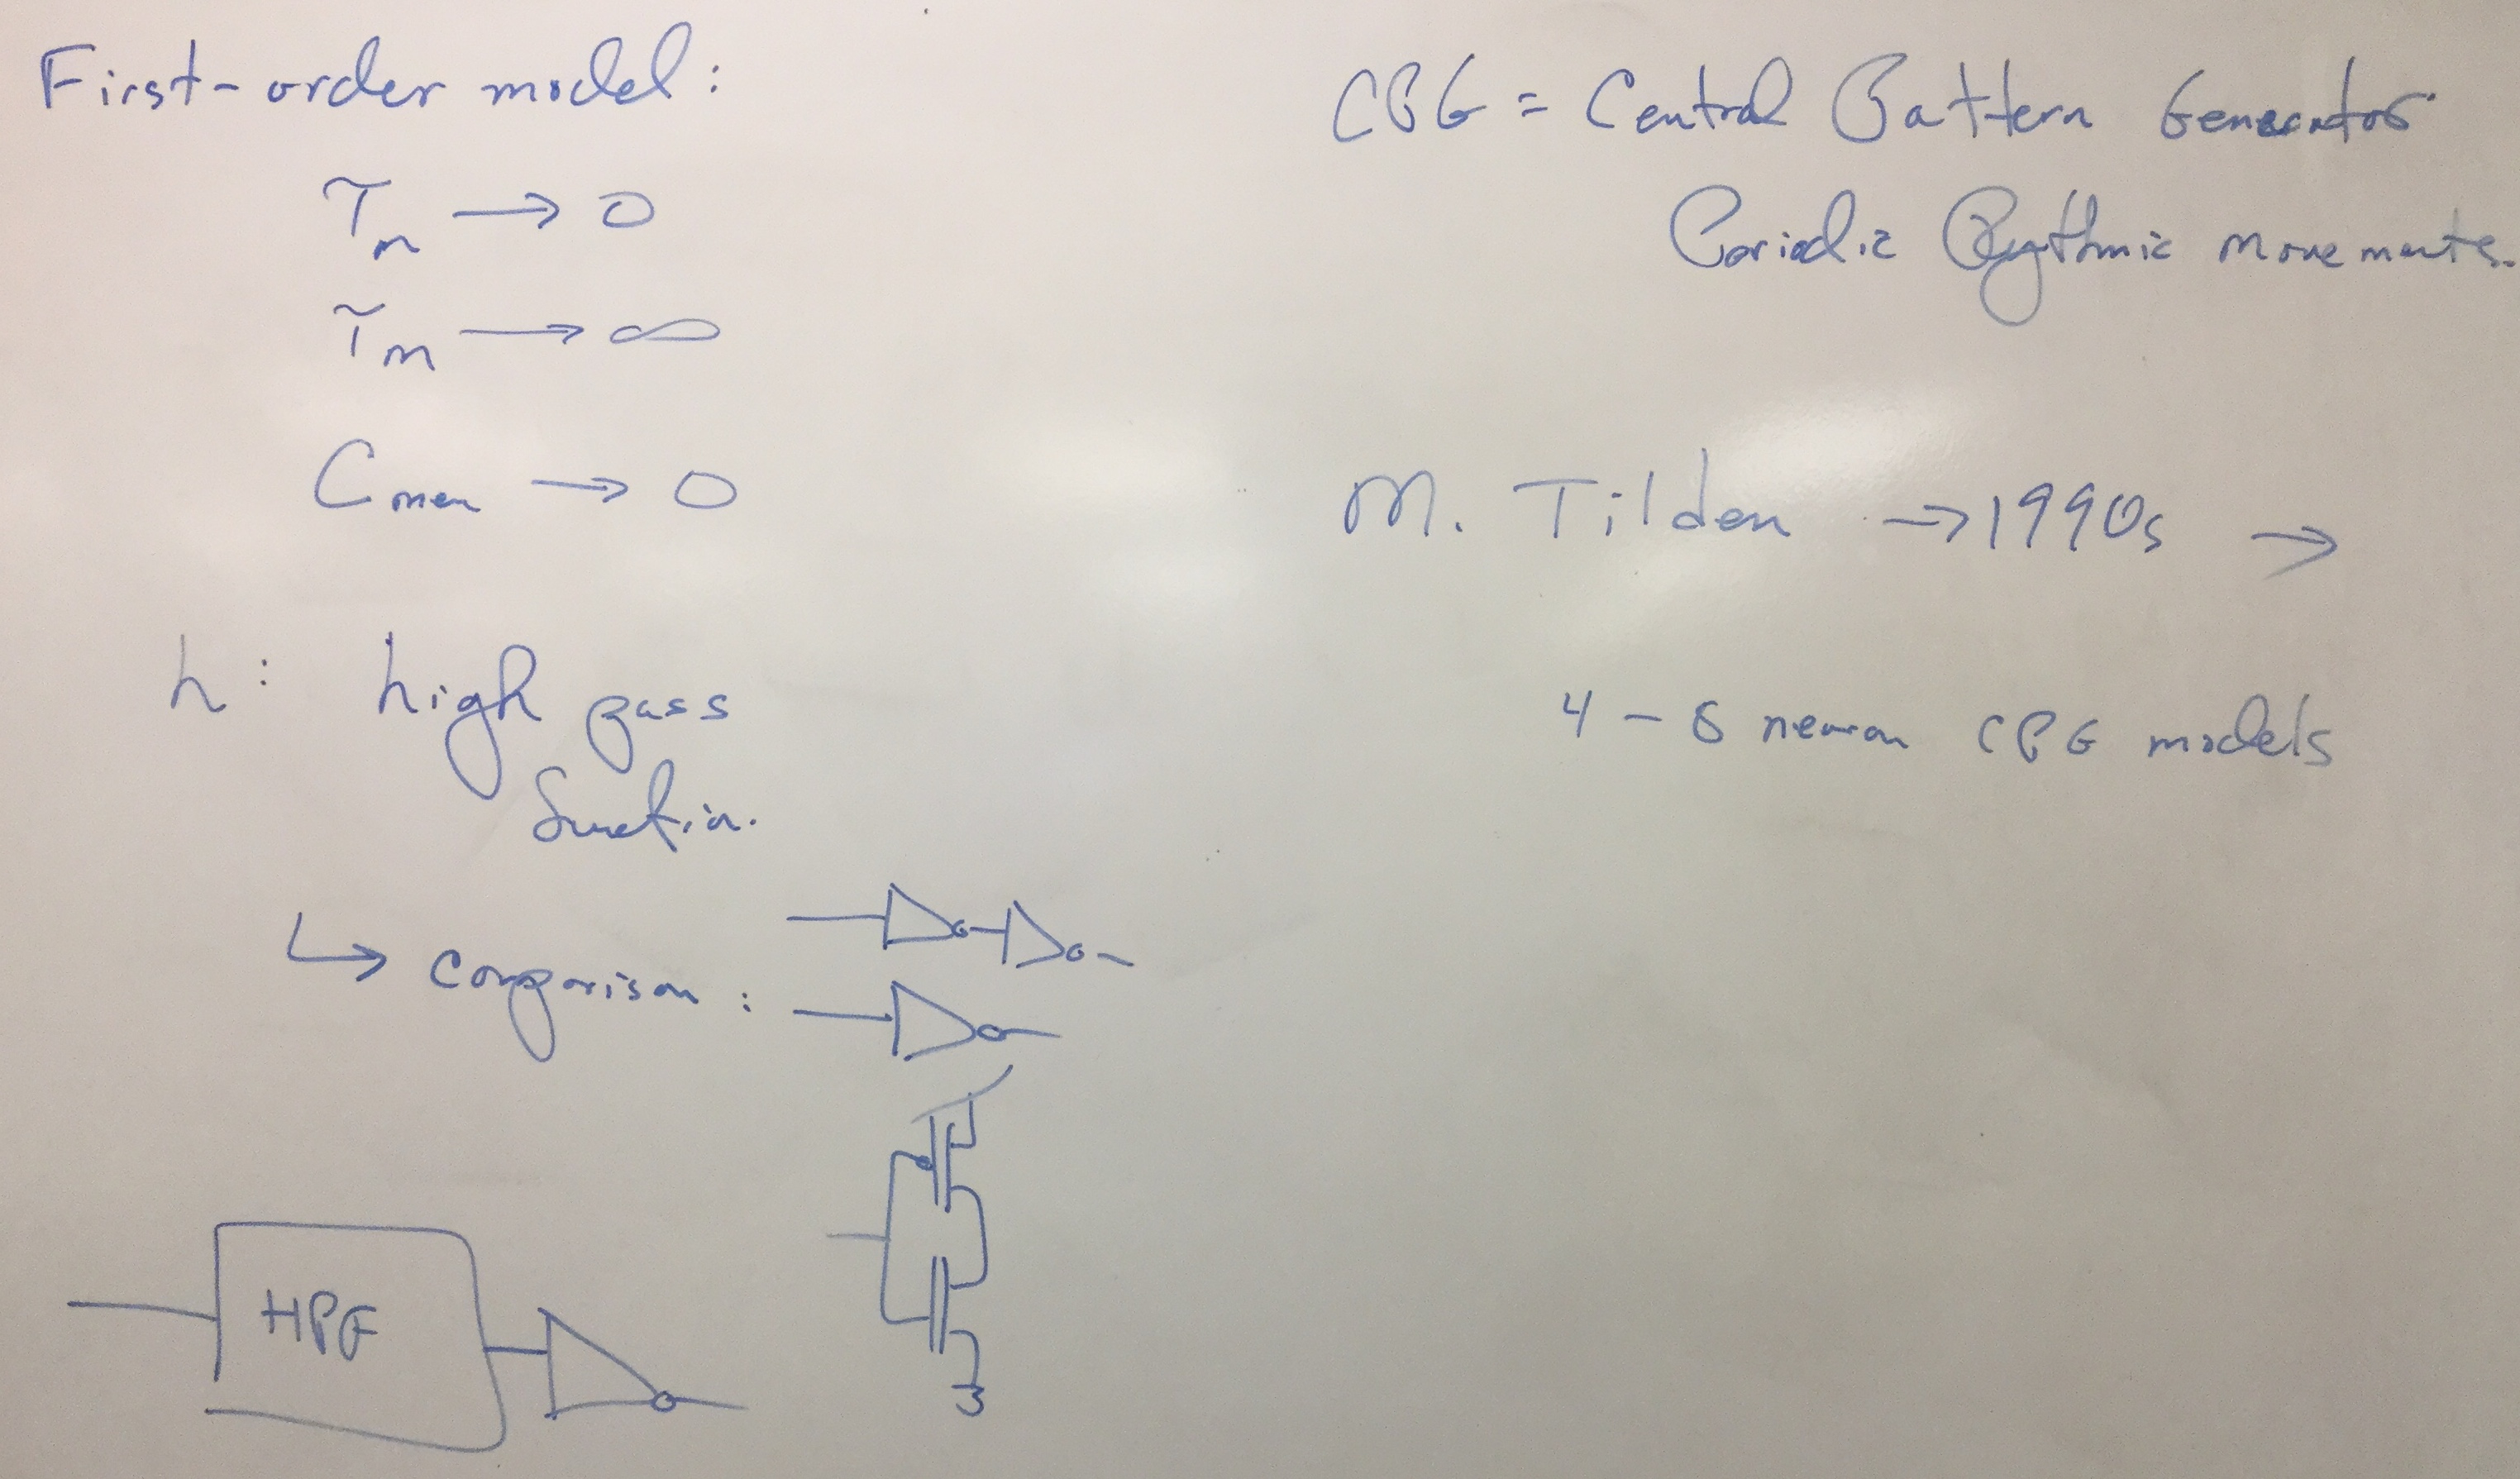 First-order model:
τm → 0
τm → ∞
Cmem → 0
h: high pass
function.
↳ Comparison:
HPF
CPG = Central Pattern Generator
Periodic Rythmic movements.
M. Tilden → 1990s →
4 - 6 neuron CPG models